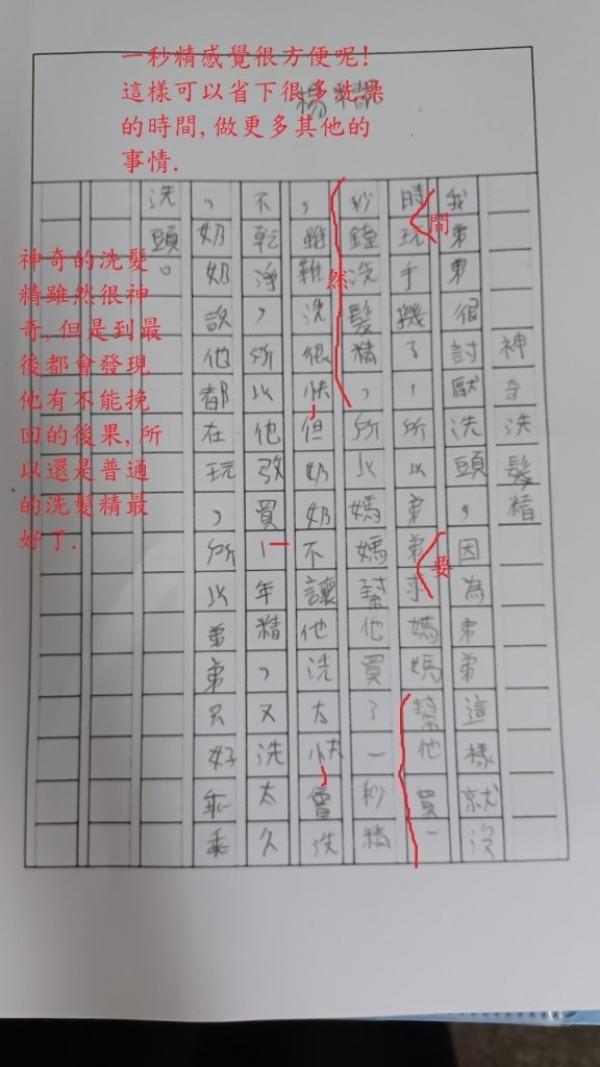 一秒精感覺很方便呢!
這樣可以省下很多洗澡
的時間,做更多其他的
事情.
神奇洗髮精
我弟弟很討厭洗頭,因為弟弟這樣就沒
時玩手機了,所以弟弟求媽媽幫他買一
間
要
秒鐘洗髮精,所以媽媽幫他買了一秒精
,雖難洗很快,但奶奶不讓他洗太快,會洗
然
不乾淨,所以他改買1年精,又洗太久
一
,奶奶說他都在玩,所以弟弟只好乖乖
洗頭。
神奇的洗髮
精雖然很神
奇,但是到最
後都會發現
他有不能挽
回的後果,所
以還是普通
的洗髮精最
好了.